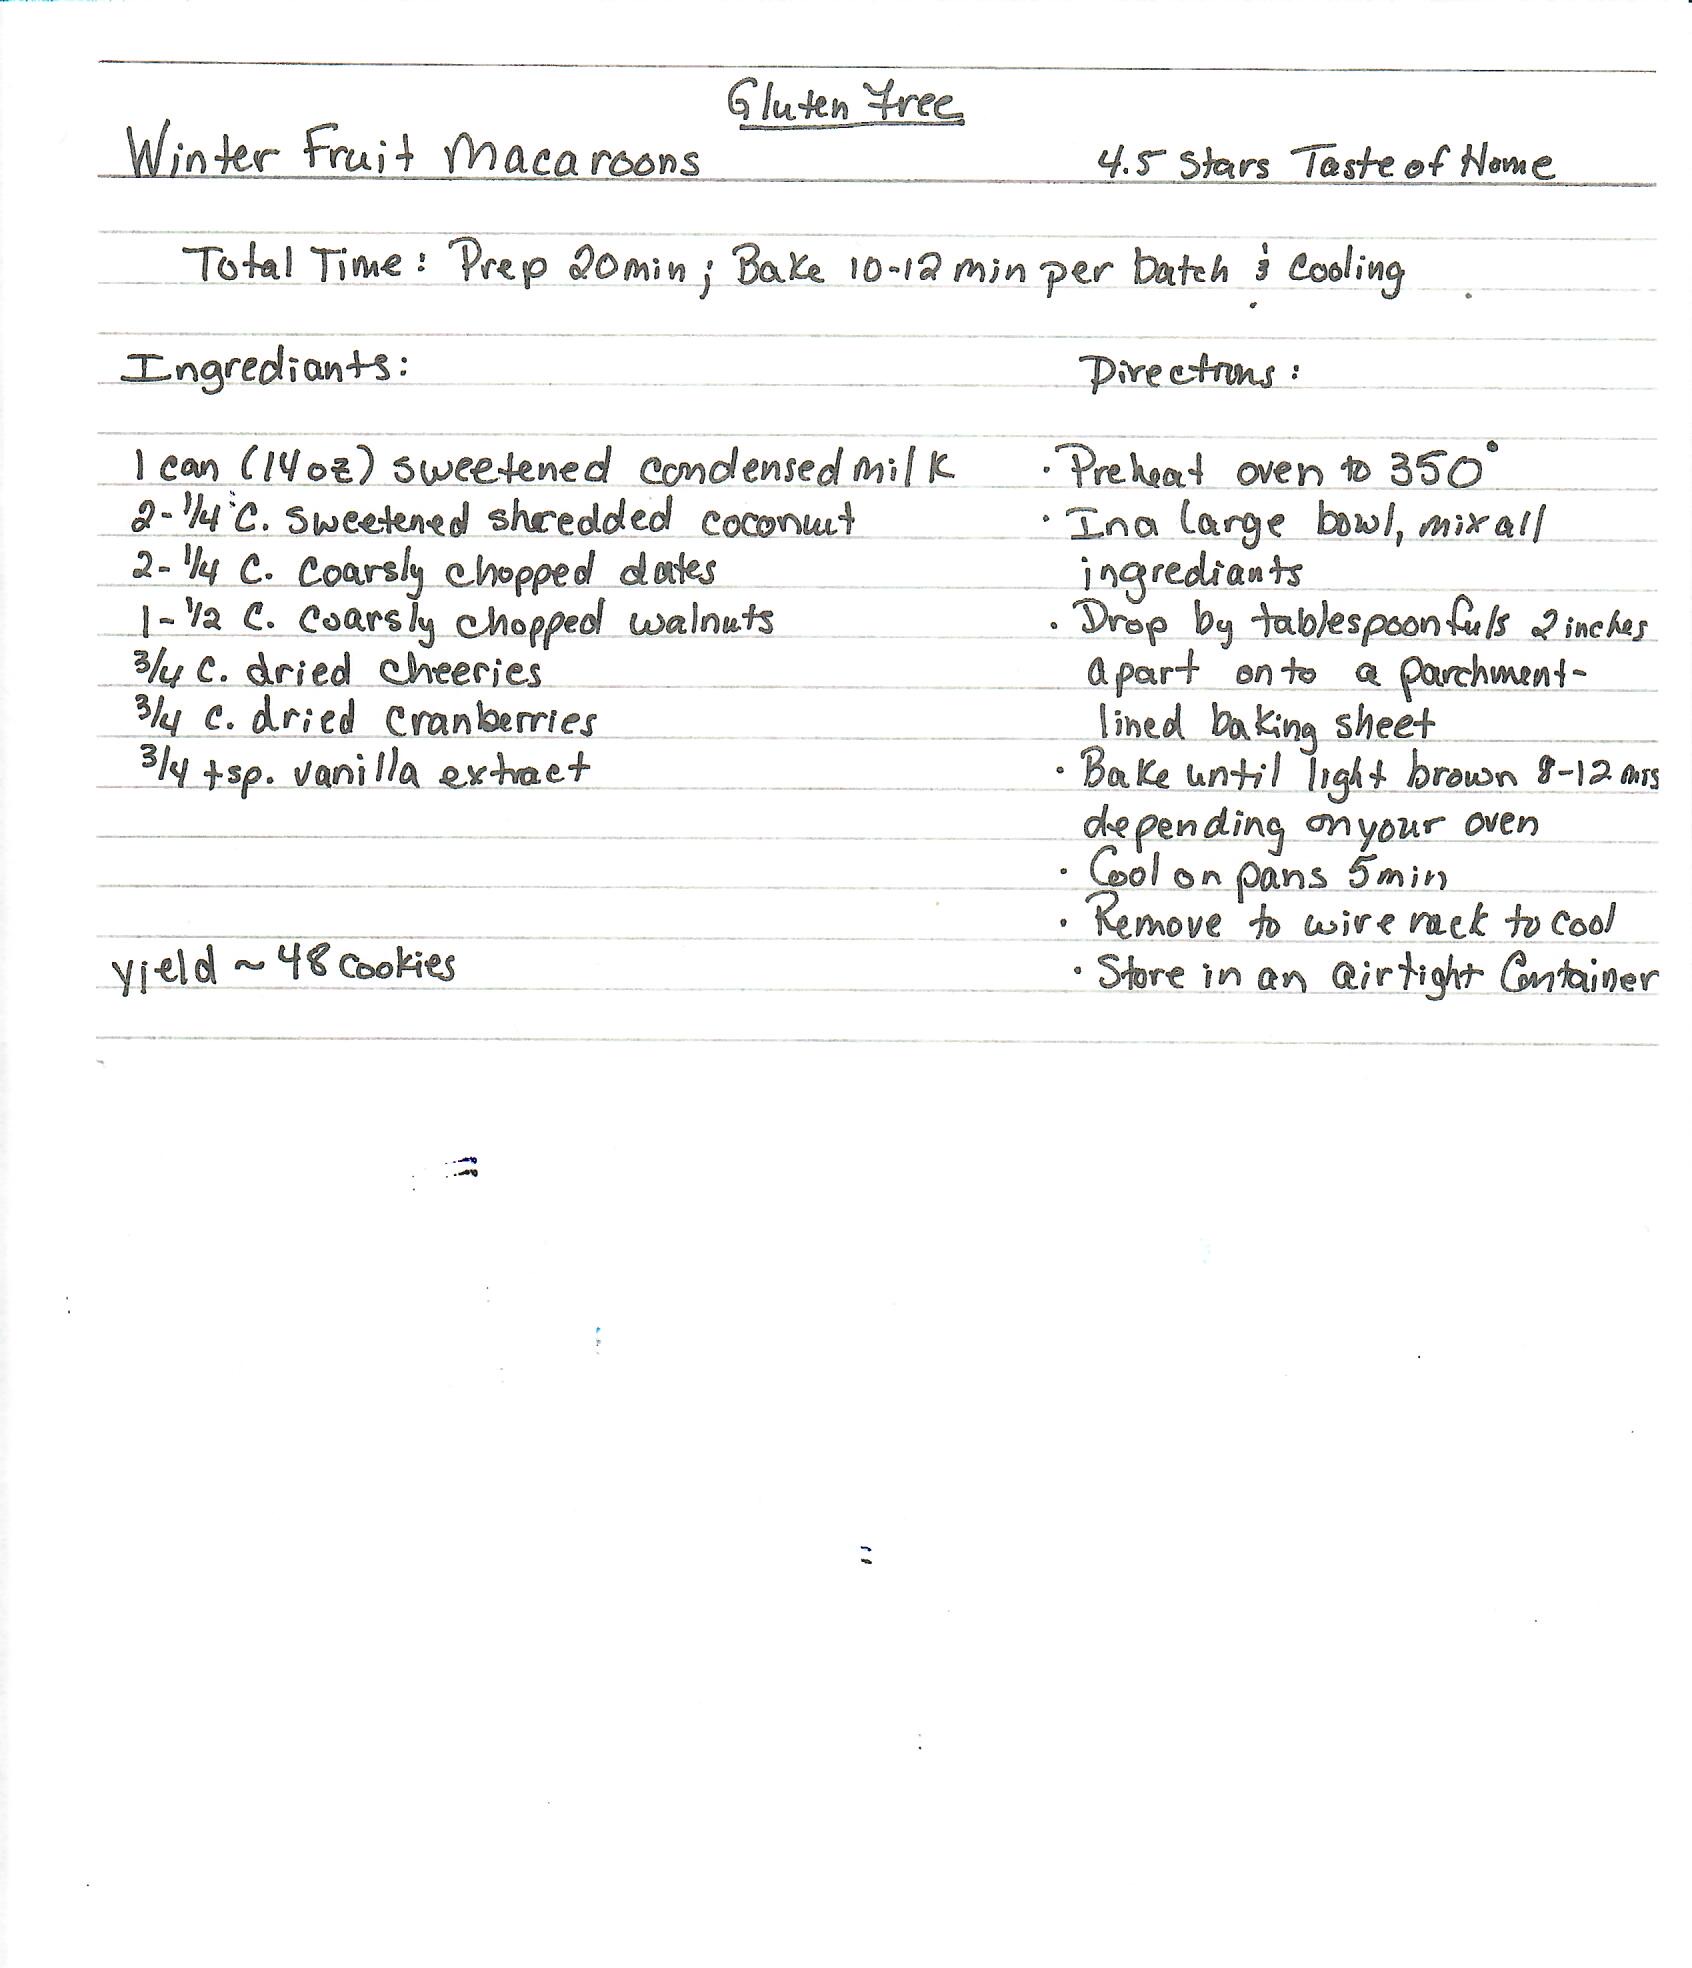 Gluten Free
Winter Fruit Macaroons
4.5 Stars Taste of Home
Total Time: Prep 20min; Bake 10-12 min per batch & Cooling
Ingrediants:
1 can (14 oz) sweetened condensed milk
2-1/4 C. sweetened shredded coconut
2-1/4 C. Coarsly chopped dates
1-1/2 C. Coarsly chopped walnuts
3/4 C. dried cheeries
3/4 C. dried cranberries
3/4 tsp. vanilla extract
yield ~ 48 cookies
Directions:
· Preheat oven to 350°
· In a large bowl, mix all
ingrediants
· Drop by tablespoonfuls 2 inches
apart onto a parchment-
lined baking sheet
· Bake until light brown 8-12 mns
depending on your oven
· Cool on pans 5 min
· Remove to wire rack to cool
· Store in an airtight Container